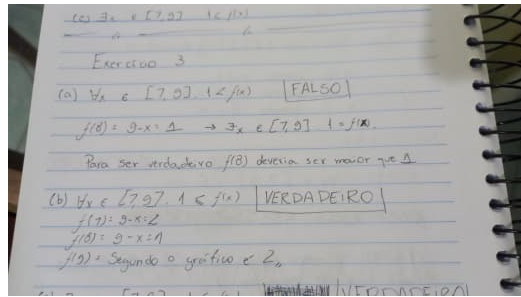 (c) ∃x ∈ [7,9] 1 < f(x)
Exercício 3
(a) ∀x ∈ [7,9] 1 < f(x) FALSO
f(8) = 9-x = 1 → ∃x ∈ [7,9] 1 = f(x).
Para ser verdadeiro f(8) deveria ser maior que 1
(b) ∀x ∈ [7,9] 1 ≤ f(x) VERDADEIRO
f(7) = 9-x = 2
f(8) = 9-x = 1
f(9) = Segundo o gráfico é 2
VERDADEIRO